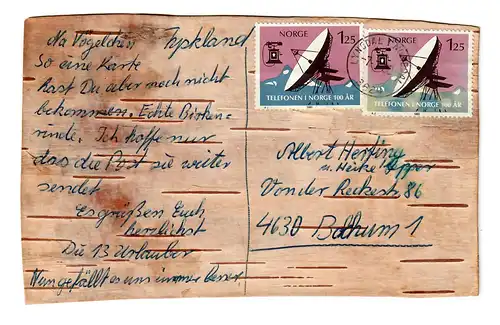 Na Vögelchen
So eine Karte
hast Du aber noch nicht
bekommen. Echte Birken-
rinde. Ich hoffe nur
das die Post sie weiter
sendet
Es grüßen Euch
herzlichst
Die 13 Urlauber
gefällt es uns immer besser
NORGE 1 25
TELEFONEN I NORGE 100 ÅR
NORGE 1 25
TELEFONEN I NORGE 100 ÅR
LYNGDAL
Albert
u. Heike
Von der Reckestr 86
4630 Bochum 1